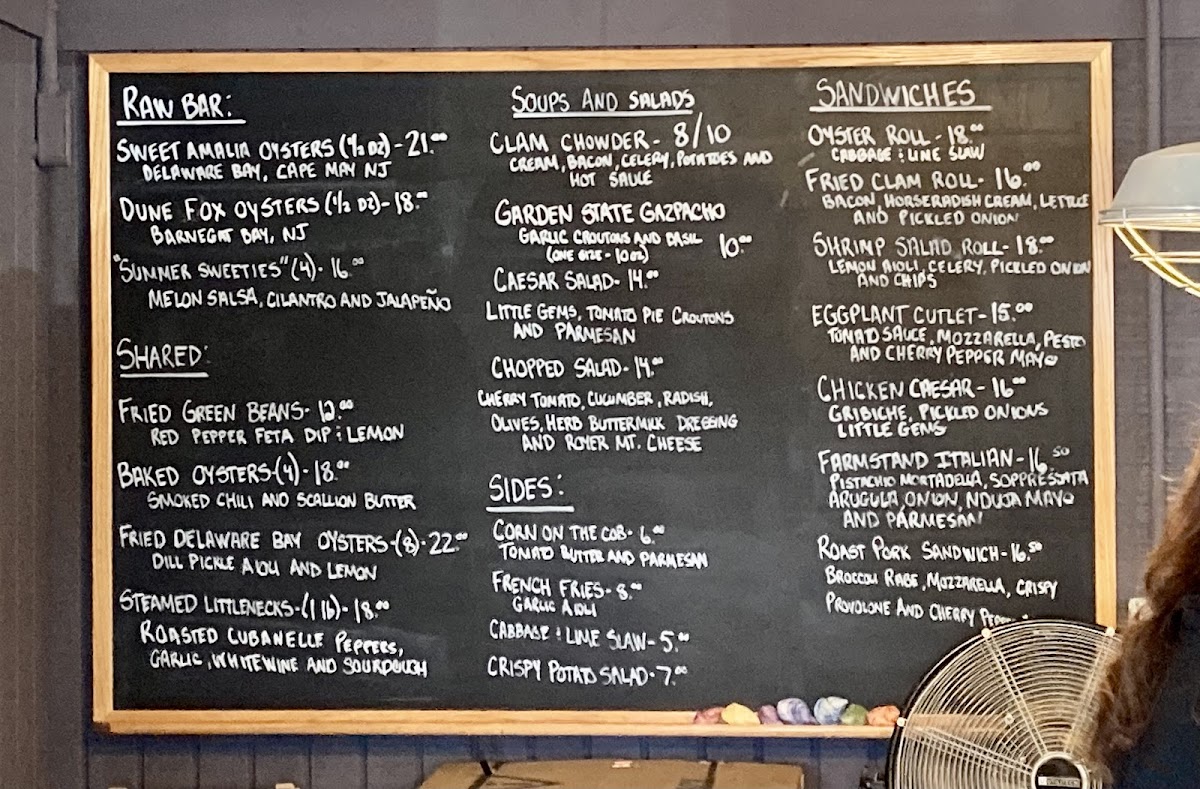 RAW BAR:
SWEET AMALIA OYSTERS (1/2 DZ) - 21.00
DELAWARE BAY, CAPE MAY NJ
DUNE FOX OYSTERS (1/2 DZ) - 18.00
BARNEGAT BAY, NJ
"SUMMER SWEETIES" (4) - 16.00
MELON SALSA, CILANTRO AND JALAPEÑO
SHARED:
FRIED GREEN BEANS - 12.00
RED PEPPER FETA DIP & LEMON
BAKED OYSTERS - (4) - 18.00
SMOKED CHILI AND SCALLION BUTTER
FRIED DELAWARE BAY OYSTERS - (8) - 22.00
DILL PICKLE AIOLI AND LEMON
STEAMED LITTLENECKS - (1 lb) - 18.00
ROASTED CUBANELLE PEPPERS,
GARLIC, WHITE WINE AND SOURDOUGH
SOUPS AND SALADS
CLAM CHOWDER - 8/10
CREAM, BACON, CELERY, POTATOES AND
HOT SAUCE
GARDEN STATE GAZPACHO
GARLIC CROUTONS AND BASIL 10.00
(ONE SIZE - 10 OZ)
CAESAR SALAD - 14.00
LITTLE GEMS, TOMATO PIE CROUTONS
AND PARMESAN
CHOPPED SALAD - 14.00
CHERRY TOMATO, CUCUMBER, RADISH,
OLIVES, HERB BUTTERMILK DRESSING
AND ROYER MT. CHEESE
SIDES:
CORN ON THE COB - 6.00
TOMATO BUTTER AND PARMESAN
FRENCH FRIES - 8.00
GARLIC AIOLI
CABBAGE & LIME SLAW - 5.00
CRISPY POTATO SALAD - 7.00
SANDWICHES
OYSTER ROLL - 18.00
CABBAGE & LIME SLAW
FRIED CLAM ROLL - 16.00
BACON, HORSERADISH CREAM, LETTUCE
AND PICKLED ONION
SHRIMP SALAD ROLL - 18.00
LEMON AIOLI, CELERY, PICKLED ONION
AND CHIPS
EGGPLANT CUTLET - 15.00
TOMATO SAUCE, MOZZARELLA, PESTO
AND CHERRY PEPPER MAYO
CHICKEN CAESAR - 16.00
GRIBICHE, PICKLED ONIONS
LITTLE GEMS
FARMSTAND ITALIAN - 16.50
PISTACHIO MORTADELLA, SOPPRESSATA
ARUGULA, ONION, NDUJA MAYO
AND PARMESAN
ROAST PORK SANDWICH - 16.50
BROCCOLI RABE, MOZZARELLA, CRISPY
PROVOLONE AND CHERRY